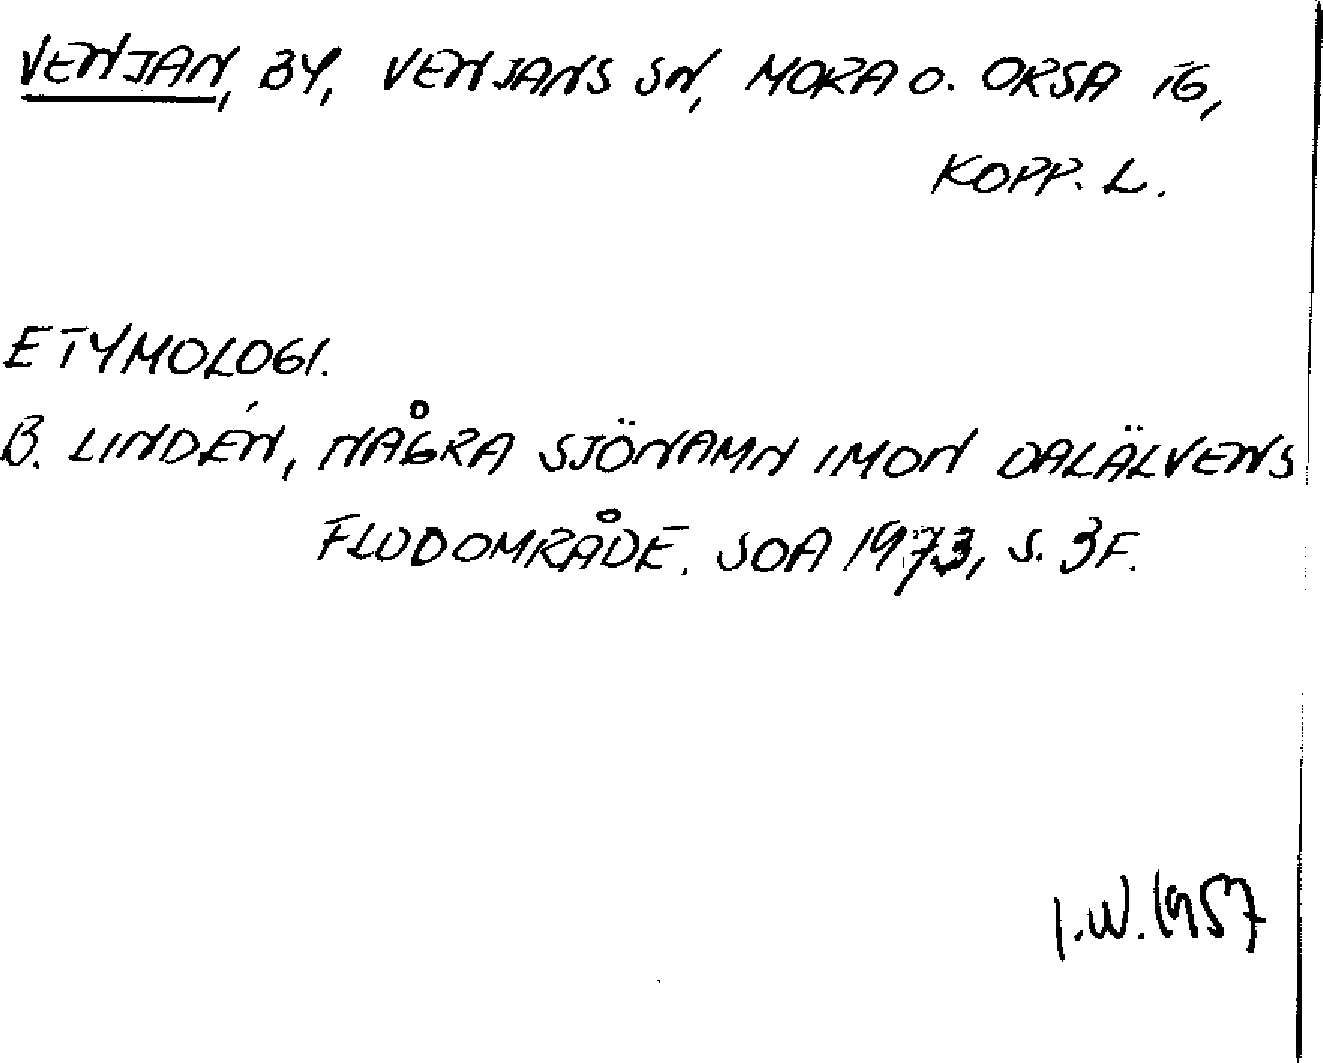 VENJAN, BY, VENJANS SN, MORA O. ORSA TG,
KOPP. L.
ETYMOLOGI.
B. LINDÉN, NÅGRA SJÖNAMN IMOM DALÄLVENS
FLODOMRÅDE. SOA 1973, S. 3F.
I.W. 1957